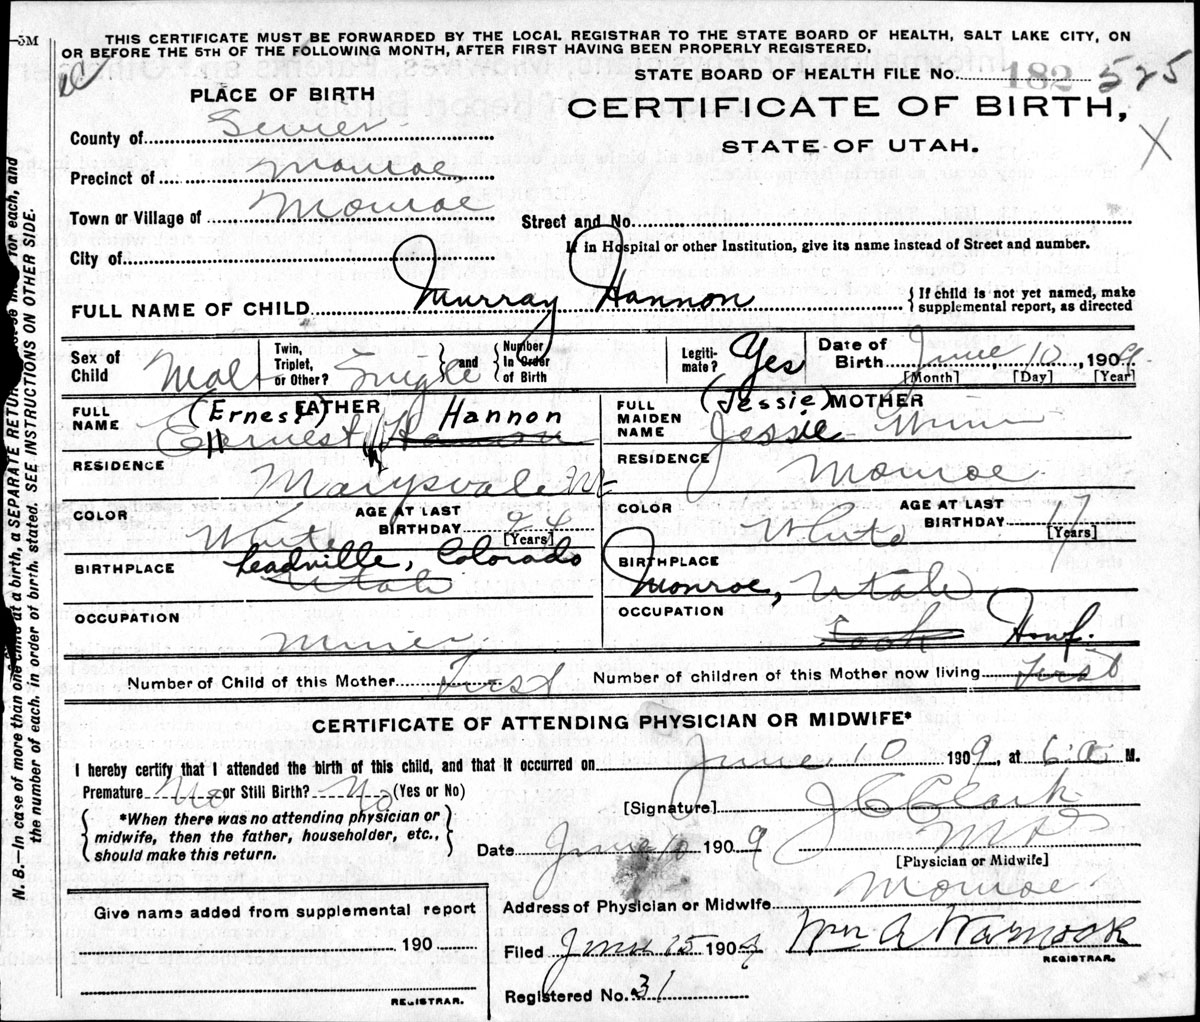 5M
THIS CERTIFICATE MUST BE FORWARDED BY THE LOCAL REGISTRAR TO THE STATE BOARD OF HEALTH, SALT LAKE CITY, ON
OR BEFORE THE 5TH OF THE FOLLOWING MONTH, AFTER FIRST HAVING BEEN PROPERLY REGISTERED.
STATE BOARD OF HEALTH FILE No. 182 525
PLACE OF BIRTH
CERTIFICATE OF BIRTH,
STATE OF UTAH.
X
County of Sevier
Precinct of Monroe,
Town or Village of Monroe
Street and No.
If in Hospital or other Institution, give its name instead of Street and number.
City of
FULL NAME OF CHILD Murray Hannon
{ If child is not yet named, make supplemental report, as directed
Sex of Child Male
Twin, Triplet, or Other? } Single and { Number In Order of Birth
Legitimate? Yes
Date of Birth June 10, 1909
[Month] [Day] [Year]
FULL NAME FATHER (Ernest) Hannon
Ernest Hannon
FULL MAIDEN NAME MOTHER (Jessie)
Jessie
RESIDENCE Marysvale Ut
RESIDENCE Monroe
COLOR White AGE AT LAST BIRTHDAY 24 [Years]
COLOR White AGE AT LAST BIRTHDAY 17 [Years]
BIRTHPLACE Leadville, Colorado
Utah
BIRTHPLACE Monroe, Utah
OCCUPATION Miner
OCCUPATION Cook Hswf.
Number of Child of this Mother First
Number of children of this Mother now living First
CERTIFICATE OF ATTENDING PHYSICIAN OR MIDWIFE*
I hereby certify that I attended the birth of this child, and that it occurred on June 10 1909, at 6 a. M.
Premature No or Still Birth? No (Yes or No)
{ *When there was no attending physician or midwife, then the father, householder, etc., should make this return. }
[Signature] J C Clark
M D
Date June 10 1909
[Physician or Midwife]
Address of Physician or Midwife Monroe
Give name added from supplemental report
190
REGISTRAR.
Filed June 15 1909 Wm A Warnock
REGISTRAR.
Registered No. 31
N. B.—In case of more than one child at a birth, a SEPARATE RETURN for each, and
the number of each, in order of birth, stated. SEE INSTRUCTIONS ON OTHER SIDE.